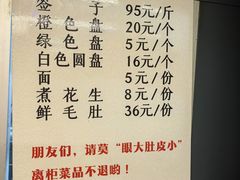 签子 95元/斤
橙色盘 20元/个
绿色盘 5元/个
白色圆盘 16元/个
面 5元/份
煮花生 8元/份
鲜毛肚 36元/份
朋友们，请莫“眼大肚皮小”
离柜菜品不退哟！